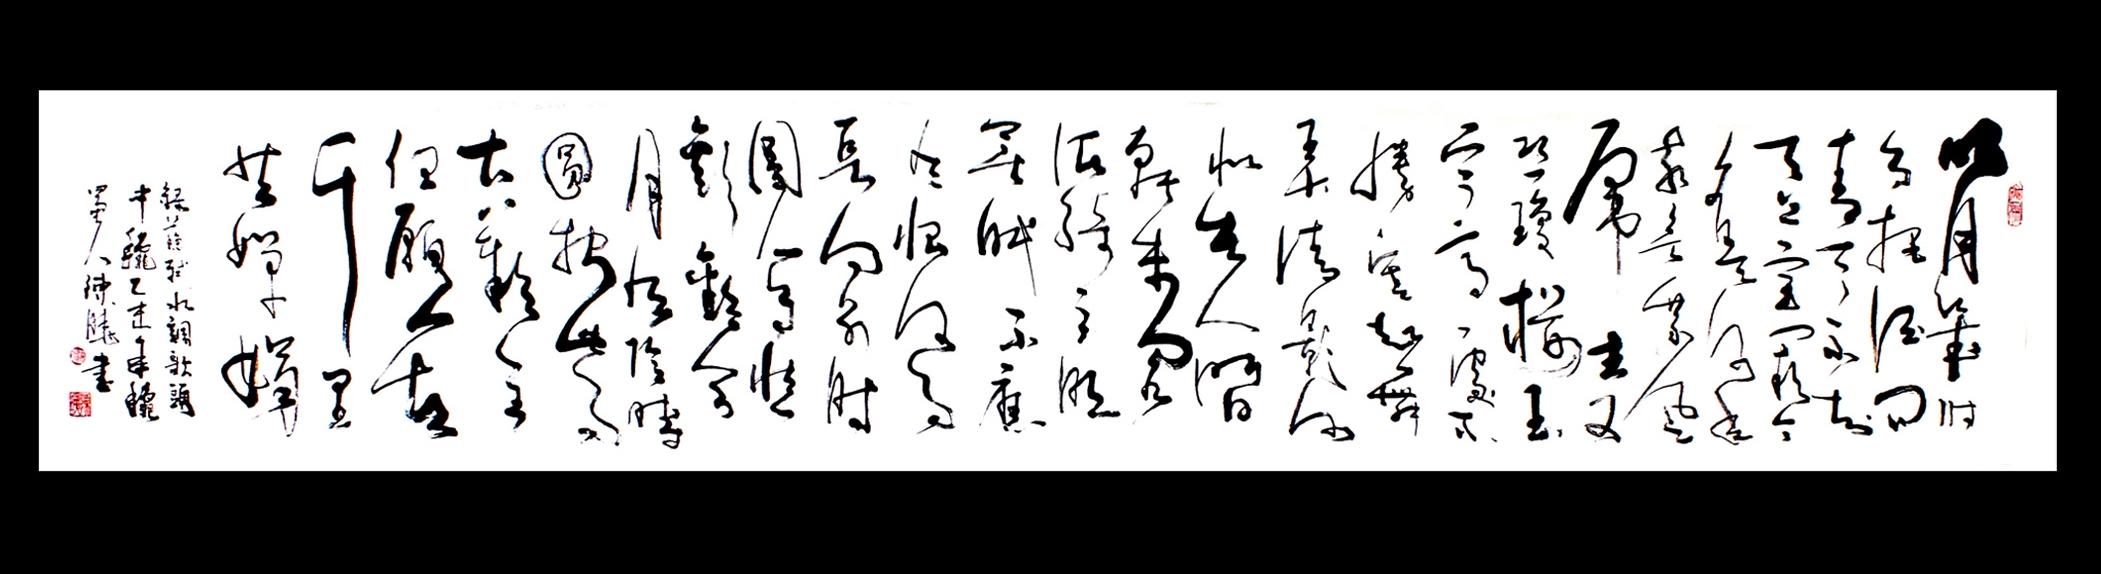 明月幾时
有把酒问
青天不知
天上宫阙今
夕是何年
我欲乘风
歸去又
恐瓊樓玉
宇高處不
勝寒起舞
弄清影何
似在人間
轉朱阁
低綺户照
無眠不應
有恨何事
長向别时
圓人有悲
歡離合
月有陰晴
圓缺此事
古難全
但願人長久
千里
共嬋娟
録蘇軾水調歌頭
中龝乙未年龝
蜀人陳
書